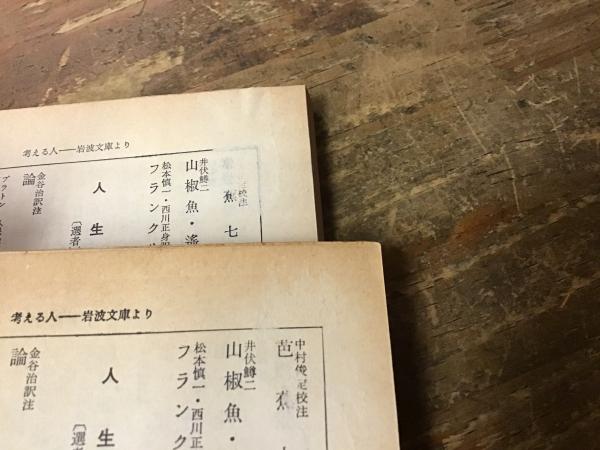 考える人──岩波文庫より
校注
蕉七
井伏鱒二
山椒魚・遙
松本慎一・西川正身訳
フランクリ
人生
〔選者
金谷治訳注
論
プラトン
考える人──岩波文庫より
中村俊定校注
芭蕉
井伏鱒二
山椒魚・
松本慎一・西川正
フランク
人生
〔選
金谷治訳注
論